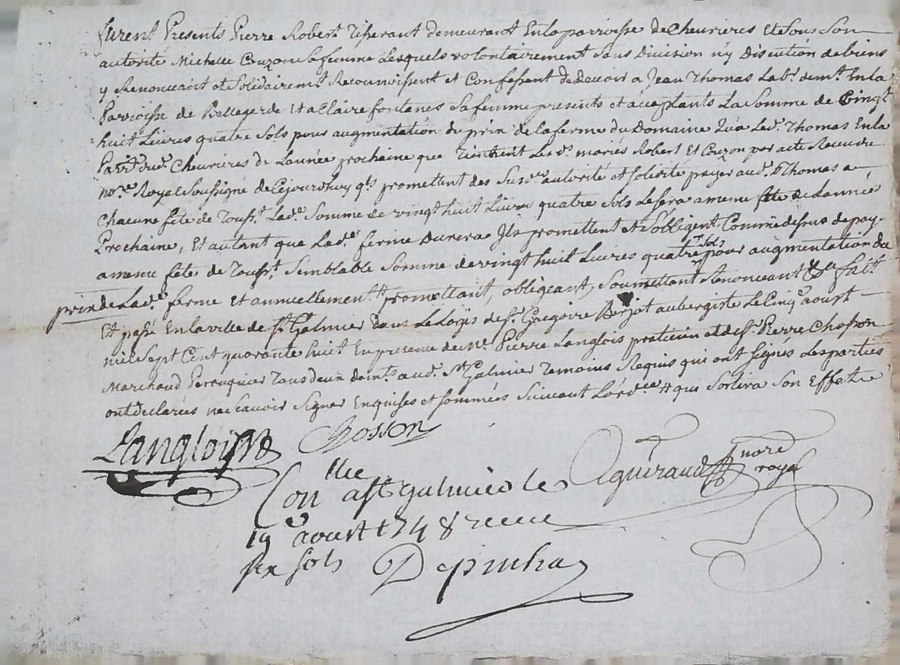 furent Presents Pierre Robert Tisserant demeurant En la parroisse de Chevrieres Et sous son
autorité Michelle Couzon sa femme Lesquels volontairement sans Division ny Discution de biens
y Renoncant et solidairemt. Reconnoissent et Confessent De Devoir a Jean Thomas Labr. demt. En la
Parroisse de Bellegarde Et a Claire fontanes sa femme presents et acceptants La Somme de vingt
huit Livres quatre Sols pour augmentation du prix de la ferme du Domaine Led. Thomas En la
Parr. Chevrieres de L'année prochaine que Tiennent Les d. mariés Robert et Couzon par acte Receu du
no.re Royal Soussigné de Cejourdhuy qls promettent des Susd. autorité et solidité payer aud. Thomas a
Chacune fête de Touss.t Lad.e Somme de vingt huit Livres quatre Sols Le fera a meme fête de L'année
Prochaine, Et autant que Lad.e ferme Durera Ils promettent et s'obligent Comme dessus de pay.
a meme fête de Touss.t Semblable Somme de vingt huit Livres quatre sols pour augmentation du
prix de Lad.e ferme Et annuellement # promettant, obligeant, Soumettant Renonceant &a fait
Et passé En la ville de St. Galmier dans Le Logis de Sr. Gregoire aubergiste Le Cinq. aoust
mil Sept Cent quarante huit En presence de Me. Pierre Langlois praticien et de Sr. Pierre Chosson
Marchand Perruquier Tous deux aud. St. Galmier Temoins Requis qui ont signés Les parties
ont declarés ne scavoir signer Enquises et sommées Suivant L'ord.ce # qui Sortira Son Effet
Langlois
Chosson
Gueraud nore royal
Con.lle a St Galmier le
19 aoust 1748 receu
six sols
Depinhac